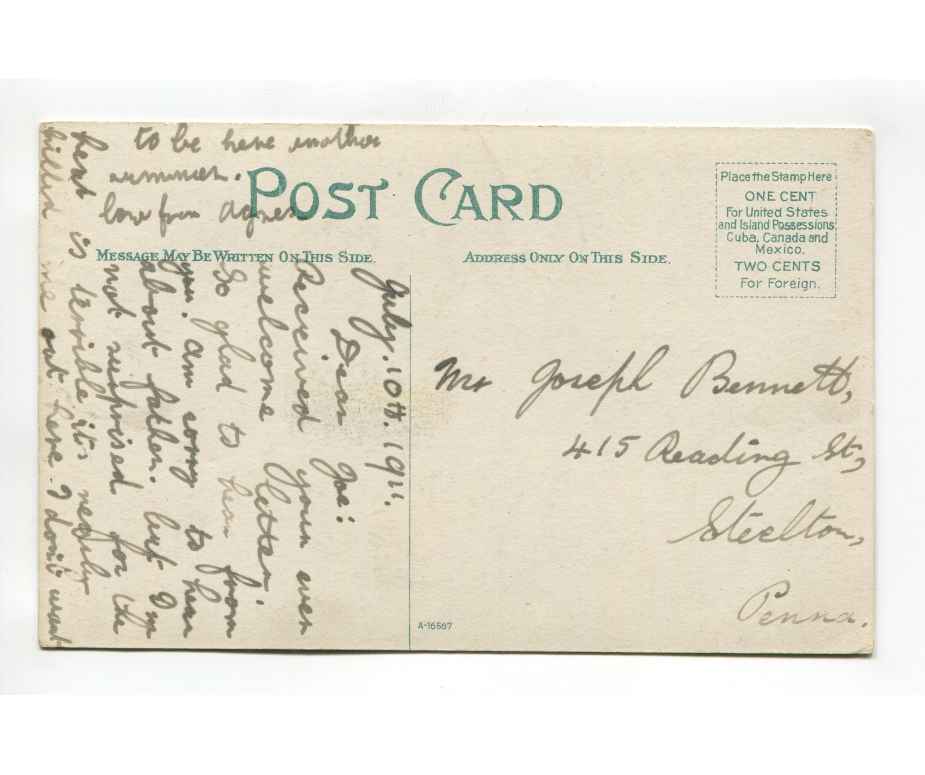 POST CARD
MESSAGE MAY BE WRITTEN ON THIS SIDE.
ADDRESS ONLY ON THIS SIDE.
Place the Stamp Here
ONE CENT
For United States
and Island Possessions,
Cuba, Canada and
Mexico.
TWO CENTS
For Foreign.
July. 10th. 1911.
Dear Joe:
Received your ever
welcome letter.
So glad to hear from
you. am sorry to hear
about father. but I'm
not surprised for the
heat is terrible its nearly
killed me out here. I don't want
to be here another
summer.
love from Agnes
Mr Joseph Bennett,
415 Reading St,
Steelton,
Penna.
A-16567